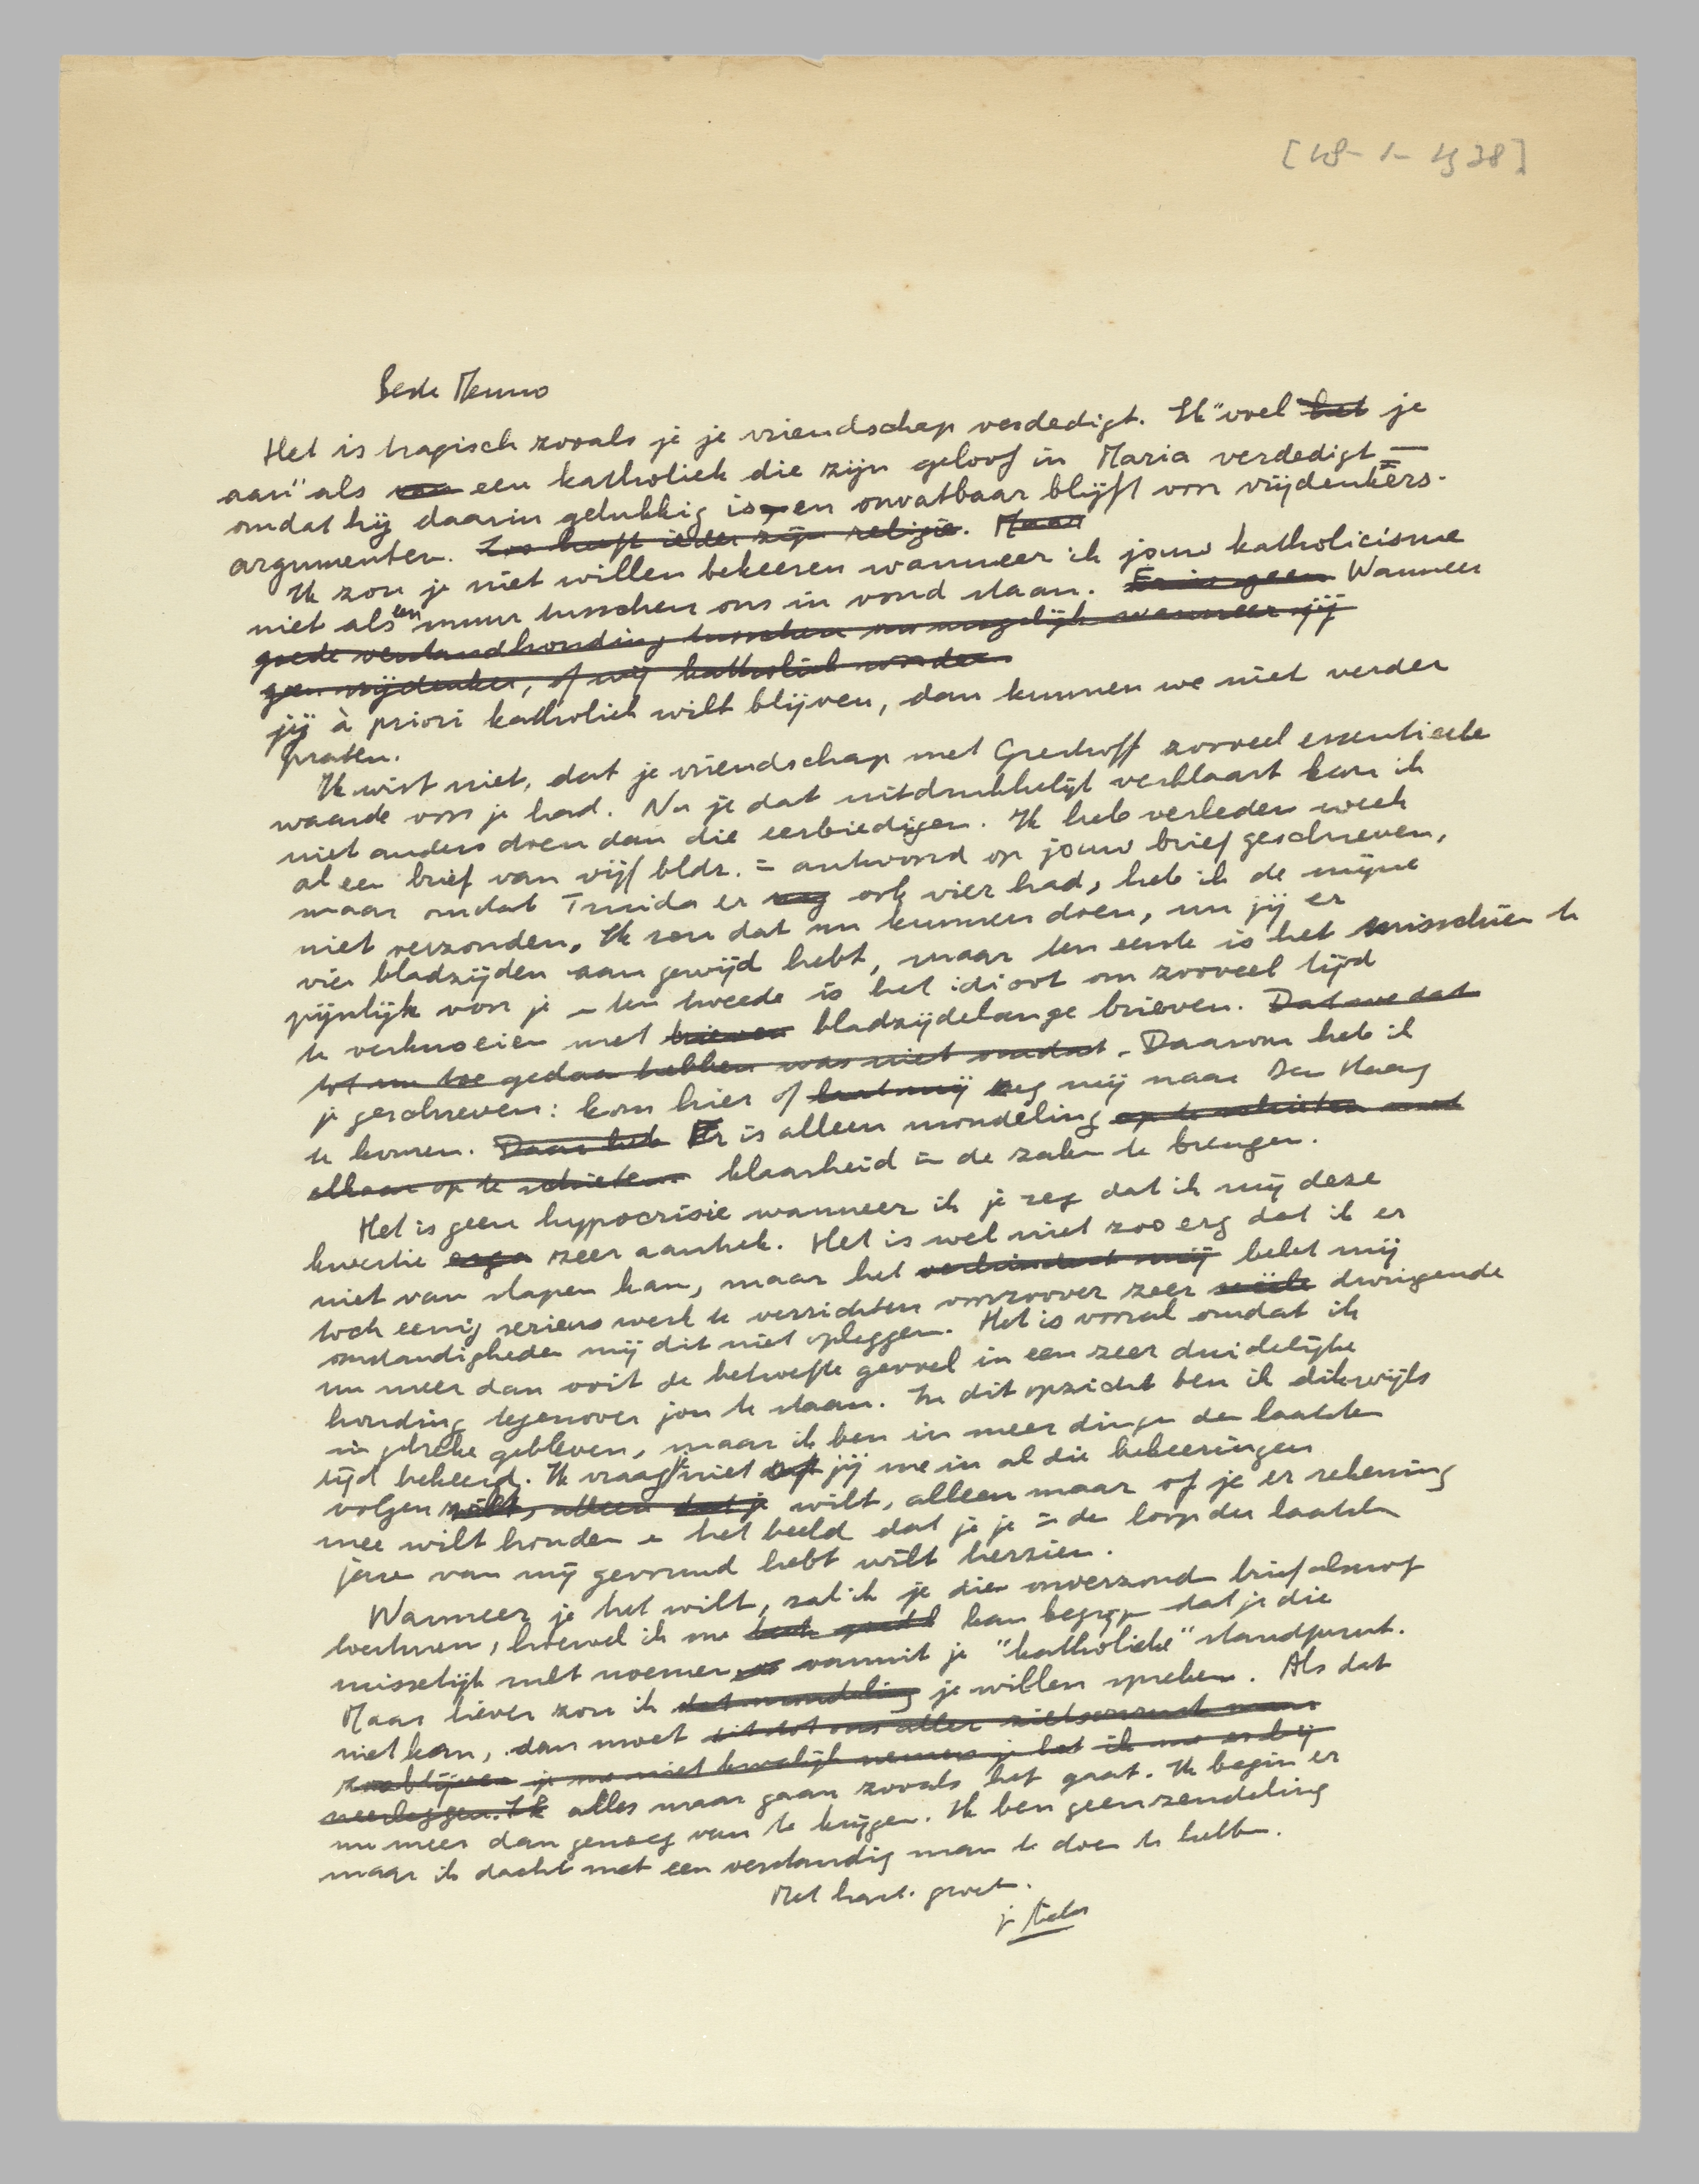 [18-1-1938]
Beste Menno
Het is tragisch zooals je je vriendschap verdedigt. Ik "voel het je
aan" als van een katholiek die zijn geloof in Maria verdedigt —
omdat hij daarin gelukkig is, en onvatbaar blijft voor vrijdenkers-
argumenten. Zoo heeft ieder zijn religie. Maar
Ik zou je niet willen bekeeren wanneer ik jouw katholicisme
niet als een muur tusschen ons in vond staan. Er is geen Wanneer
goede verstandhouding tusschen ons mogelijk wanneer jij
geen vrijdenker, of wij katholiek worden
jij à priori katholiek wilt blijven, dan kunnen we niet verder
praten.
Ik wist niet, dat je vriendschap met Greshoff zooveel essentieele
waarde voor je had. Nu je dat uitdrukkelijk verklaart kan ik
niet anders doen dan die eerbiedigen. Ik heb verleden week
al een brief van vijf bldz. = antwoord op jouw brief geschreven,
maar omdat Truida er nog ook vier had, heb ik de mijne
niet verzonden. Ik zou dat nu kunnen doen, nu jij er
vier bladzijden aan gewijd hebt, maar ten eerste is het misschien te
pijnlijk voor je – ten tweede is het idioot om zooveel tijd
te verknoeien met brieven bladzijdelange brieven. Dat we dat
tot nu toe gedaan hebben was niet omdat. Daarom heb ik
je geschreven: kom hier of laat mij zeg mij naar Den Haag
te komen. Daar heb Er is alleen mondeling op te schieten met
elkaar op te schieten klaarheid in de zaken te brengen.
Het is geen hypocrisie wanneer ik je zeg dat ik mij deze
kwestie erg zeer aantrek. Het is wel niet zoo erg dat ik er
niet van slapen kan, maar het verhindert mij belet mij
toch eenig serieus werk te verrichten voorzoover zeer dwingende
omstandigheden mij dit niet opleggen. Het is vooral omdat ik
nu meer dan ooit de behoefte gevoel in een zeer duidelijke
houding tegenover jou te staan. In dit opzicht ben ik dikwijls
in gebreke gebleven, maar ik ben in meer dingen den laatsten
tijd bekeerd. Ik vraag je niet of jij me in al die bekeeringen
volgen wilt, alleen dat je wilt, alleen maar of je er rekening
mee wilt houden en het beeld dat je je in den loop der laatste
jaren van mij gevormd hebt wilt herzien.
Wanneer je het wilt, zal ik je dien onverzonden brief alsnog
toesturen, hoewel ik me heel goed kan begrijpen dat je die
misselijk zult noemen vanuit je "katholieke" standpunt.
Maar liever zou ik dat mondeling je willen spreken. Als dat
niet kan, dan moet dit tot ons aller zielsverdriet maar
zoo blijven je me niet kwalijk nemen je dat ik me erbij
neerleggen. Ik alles maar gaan zooals het gaat. Ik begin er
nu meer dan genoeg van te krijgen. Ik ben geen zendeling
maar ik dacht met een verstandig man te doen te hebben.
Met hart. groet.
je